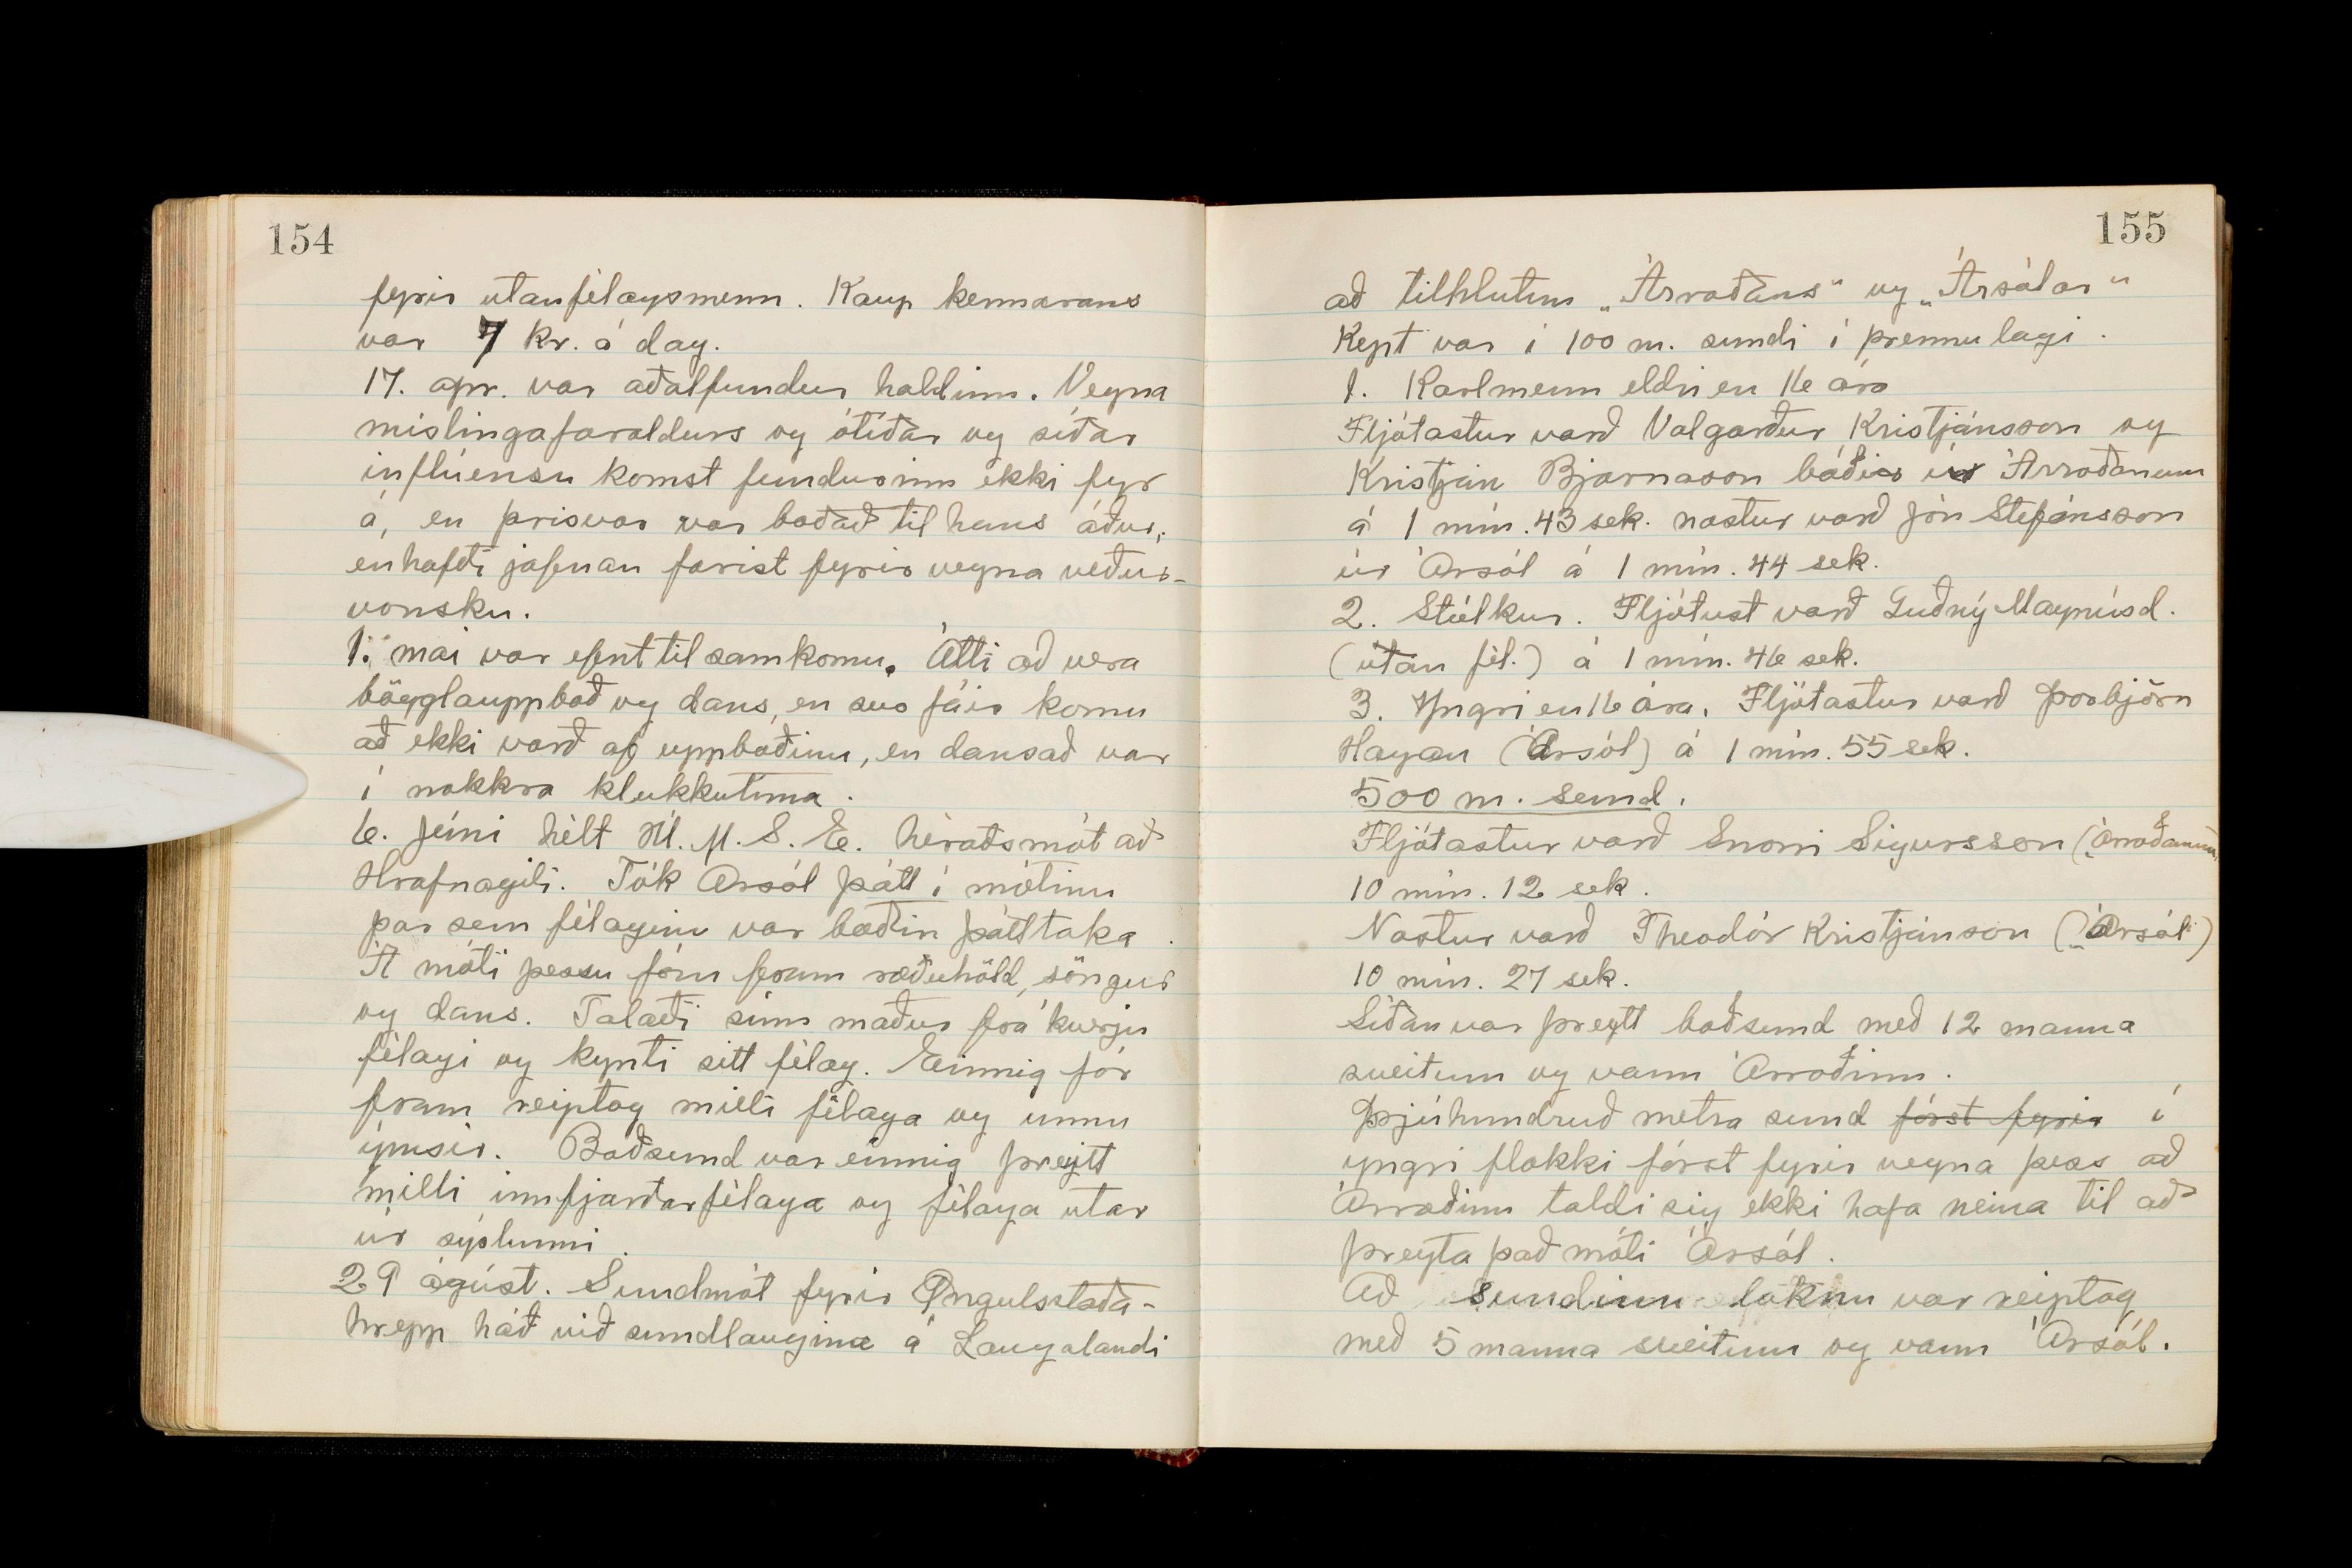 154
fyrir utanfélagsmenn. Kaup kennarans
var 7 kr. á dag.
17. apr. var aðalfundur haldinn. Vegna
mislingafaraldurs og ótíðar og síðar
inflúensu komst fundurinn ekki fyr
á, en prisvar var boðað til hans áður,
en hafði jafnan farist fyrir vegna veður-
vonsku.
1. maí var efnt til samkomu. Átti að vera
bögglauppboð og dans, en svo fáir komu
að ekki varð af uppboðinu, en dansað var
í nokkra klukkutíma.
6. júní hélt U.M.S.E. héraðsmót að
Hrafnagili. Tók Ársól þátt í mótinu
þar sem félaginu var boðin þátttaka.
Á móti þessu fóru fram ræðuhöld, söngur
og dans. Talaði sinn maður frá hverju
félagi og kynti sitt félag. Einnig fór
fram reiptog milli félaga og unnu
ýmsir. Boðsund var einnig þreytt
milli innfjarðarfélaga og félaga utar
úr sýslunni.
29 ágúst. Sundmót fyrir Öngulsstaða-
hrepp háð við sundlaugina á Laugalandi
155
að tilhlutun „Árroðans" og „Ársólar"
Kept var í 100 m. sundi í þrennu lagi.
1. Karlmenn eldri en 16 ára
Fljótastur varð Valgarður Kristjánsson og
Kristján Bjarnason báðir úr Árroðanum
á 1 mín. 43 sek. nastur varð Jón Stefánsson
úr Ársól á 1 mín. 44 sek.
2. Stúlkur. Fljótust varð Guðný Magnúsd.
(utan fél.) á 1 mín. 46 sek.
3. Yngri en 16 ára. Fljótastur varð Þorbjörn
Hagan (Ársól) á 1 mín. 55 sek.
500 m. sund.
Fljótastur varð Snorri Sigursson (Árroðanum
10 mín. 12 sek.
Nastur varð Theodór Kristjánson („Ársól")
10 mín. 27 sek.
Síðan var þreytt boðsund með 12 manna
sveitum og vann Árroðinn.
Þrjúhundruð metra sund fórst fyrir í
yngri flokki fórst fyrir vegna þess að
Árroðinn taldi sig ekki hafa neina til að
þreyta það móti Ársól.
Að sundinu loknu var reiptog
með 5 manna sveitum og vann Ársól.